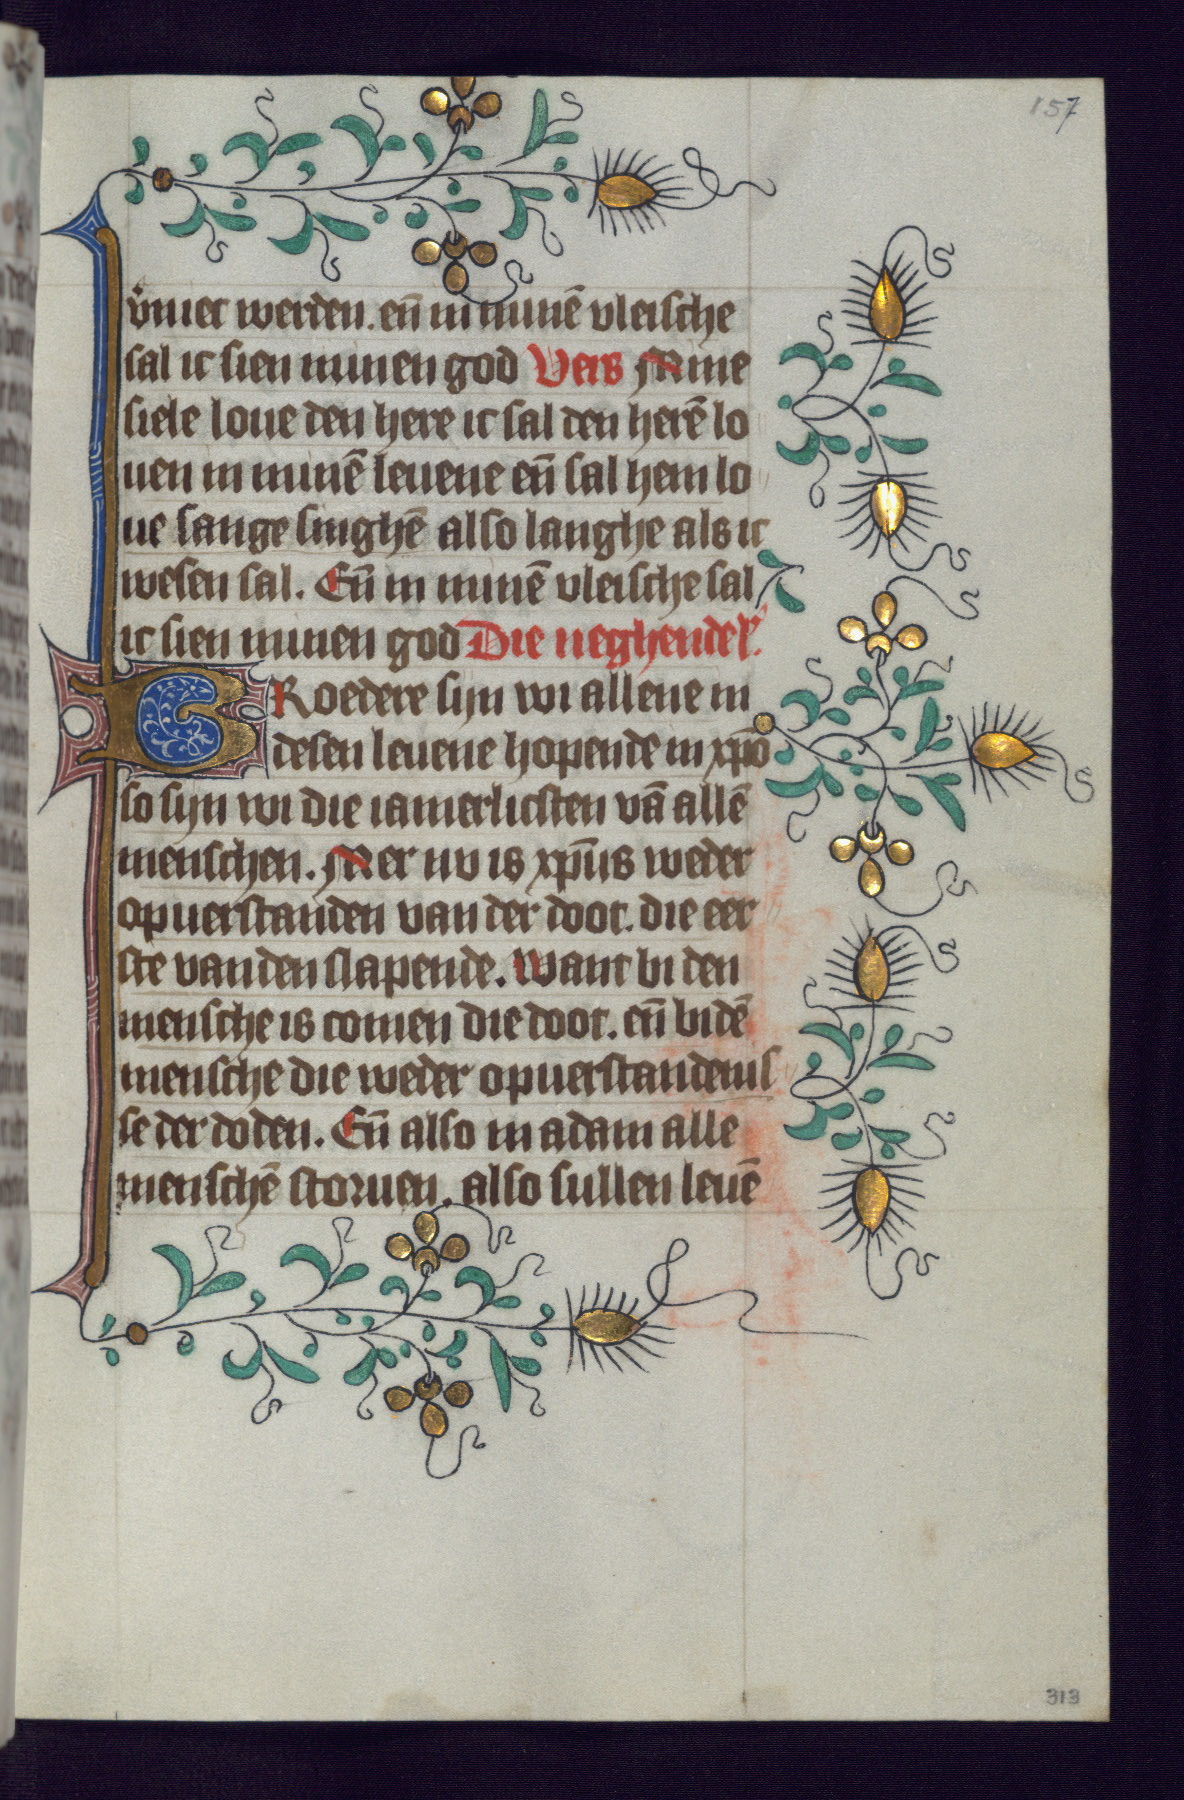 157
vniet werden. en̄ in minē vleische
sal ic sien minen god Vers Mine
siele loue den here ic sal den herē lo
uen in minē leuene en̄ sal hem lo
ue sange singhē also langhe als ic
wesen sal. En̄ in minē vleische sal
ic sien minen god Die neghende
BRoedere sijn wi allene in
desen leuene hopende in xpō
so sijn wi die iamerlicsten vā allē
menschen. Mer nv is xpūs weder
opuerstanden van der doot. die eer
ste van den slapende. Want bi den
mensche is comen die doot. en̄ bi dē
mensche die weder opuerstandenis
se der doden. En̄ also in adam alle
menschē storuen. also sullen leuē
313